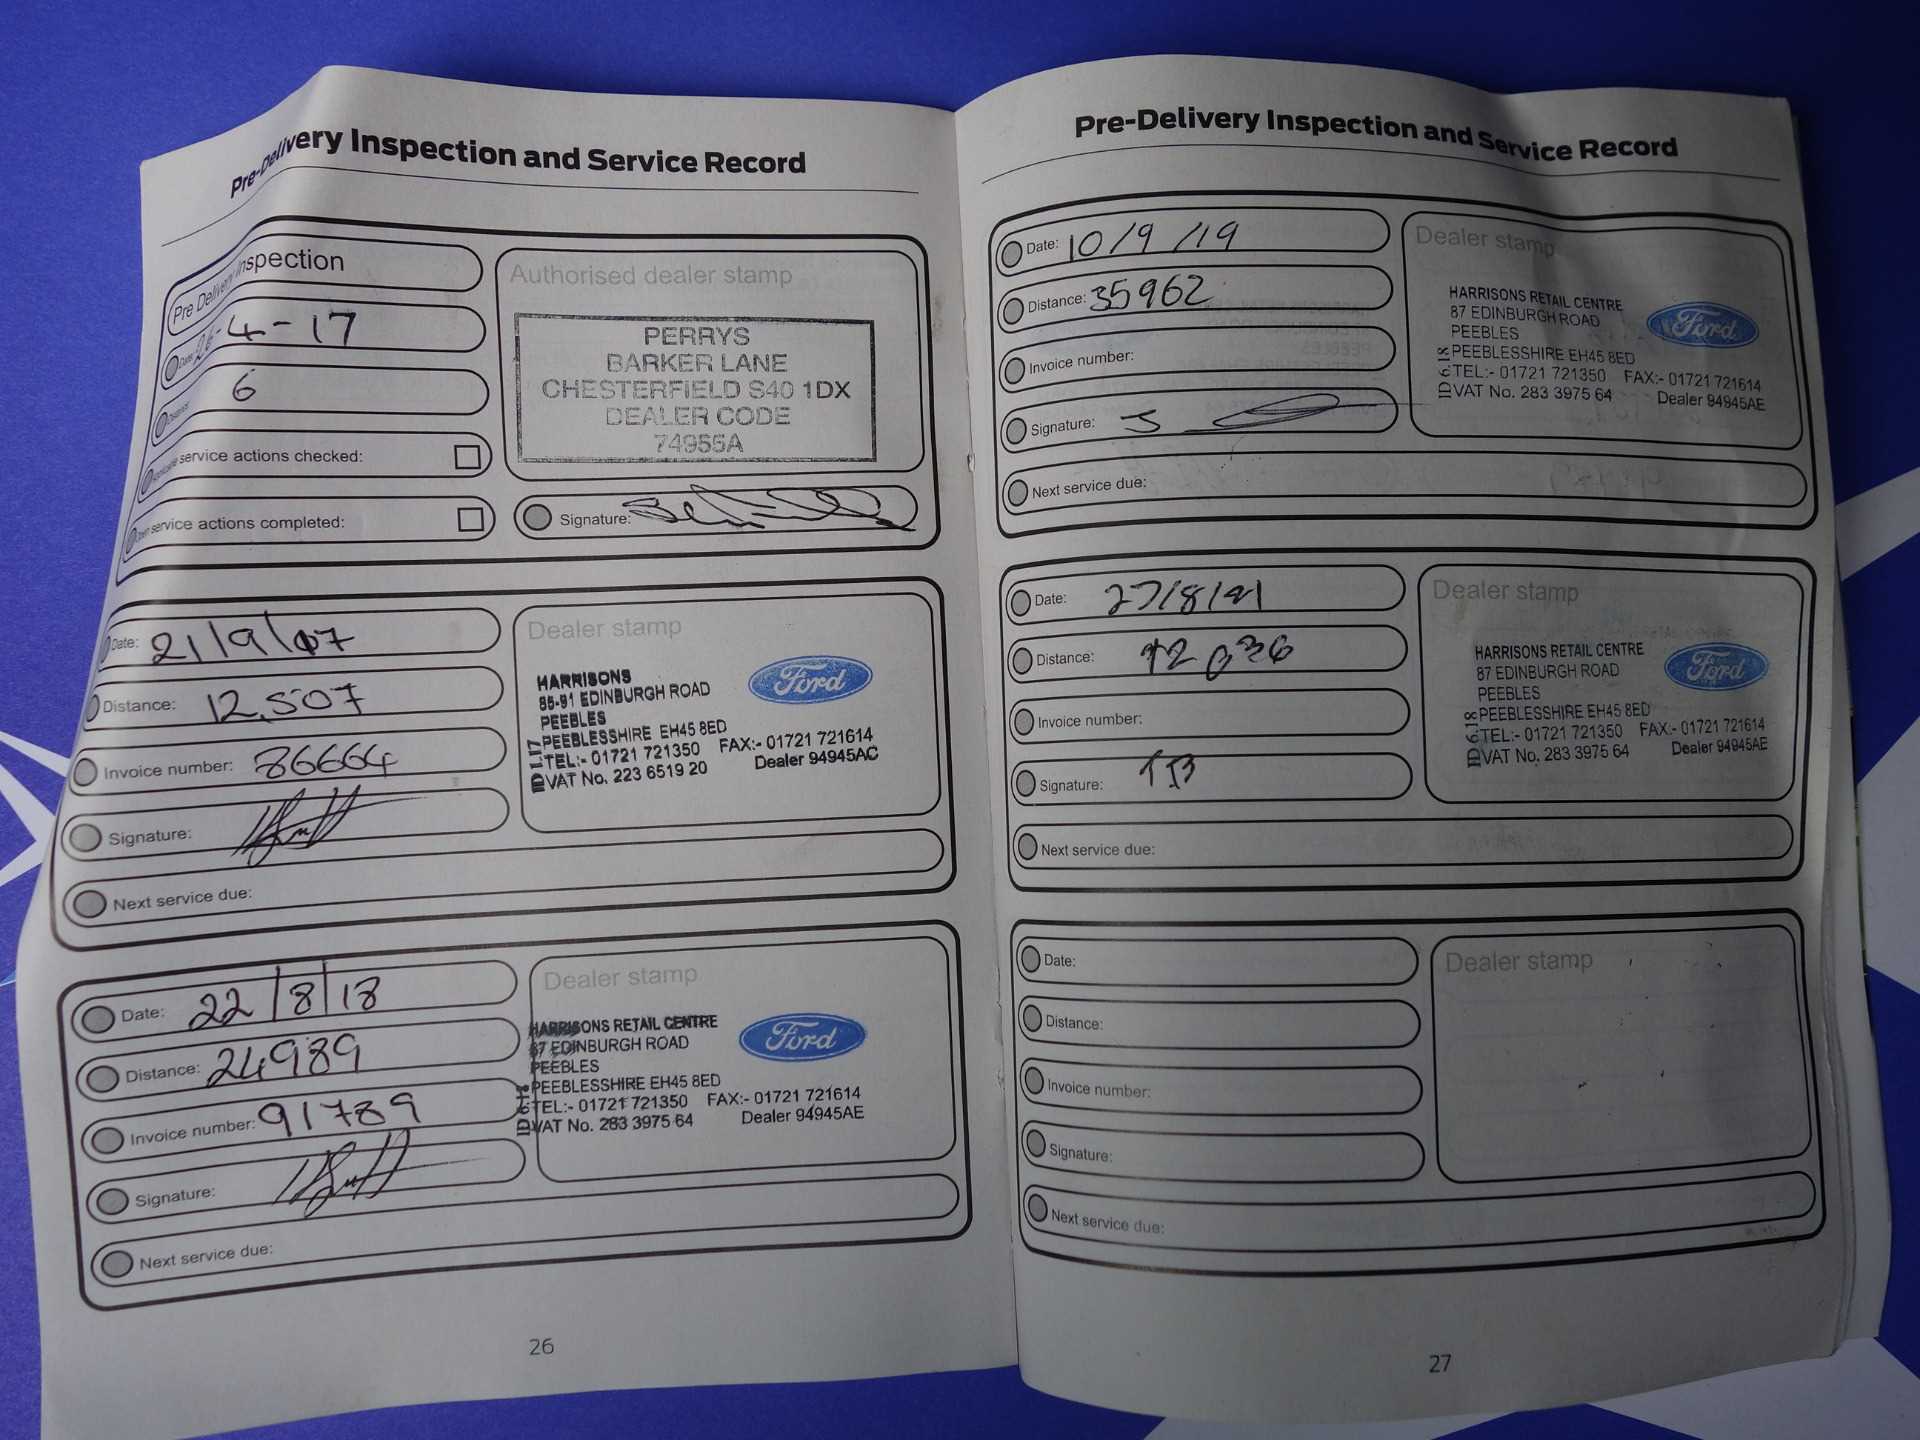 Pre-Delivery Inspection and Service Record
Pre Delivery Inspection
Date: 26-4-17
Distance: 6
service actions checked:
Open service actions completed:
Authorised dealer stamp
PERRYS
BARKER LANE
CHESTERFIELD S40 1DX
DEALER CODE
74955A
Signature:
Date: 21/9/17
Distance: 12,507
Invoice number: 86664
Signature:
Next service due:
Dealer stamp
HARRISONS
85-91 EDINBURGH ROAD
PEEBLES
PEEBLESSHIRE EH45 8ED
TEL:- 01721 721350 FAX:- 01721 721614
VAT No. 223 6519 20 Dealer 94945AC
Ford
Date: 22/8/18
Distance: 24989
Invoice number: 91789
Signature:
Next service due:
Dealer stamp
HARRISONS RETAIL CENTRE
87 EDINBURGH ROAD
PEEBLES
PEEBLESSHIRE EH45 8ED
TEL:- 01721 721350 FAX:- 01721 721614
VAT No. 283 3975 64 Dealer 94945AE
Ford
26
Pre-Delivery Inspection and Service Record
Date: 10/9/19
Distance: 35962
Invoice number:
Signature:
Next service due:
Dealer stamp
HARRISONS RETAIL CENTRE
87 EDINBURGH ROAD
PEEBLES
PEEBLESSHIRE EH45 8ED
TEL:- 01721 721350 FAX:- 01721 721614
VAT No. 283 3975 64 Dealer 94945AE
Ford
Date: 27/8/21
Distance:
Invoice number:
Signature:
Next service due:
Dealer stamp
HARRISONS RETAIL CENTRE
87 EDINBURGH ROAD
PEEBLES
PEEBLESSHIRE EH45 8ED
TEL:- 01721 721350 FAX:- 01721 721614
VAT No. 283 3975 64 Dealer 94945AE
Ford
Date:
Distance:
Invoice number:
Signature:
Next service due:
Dealer stamp
27